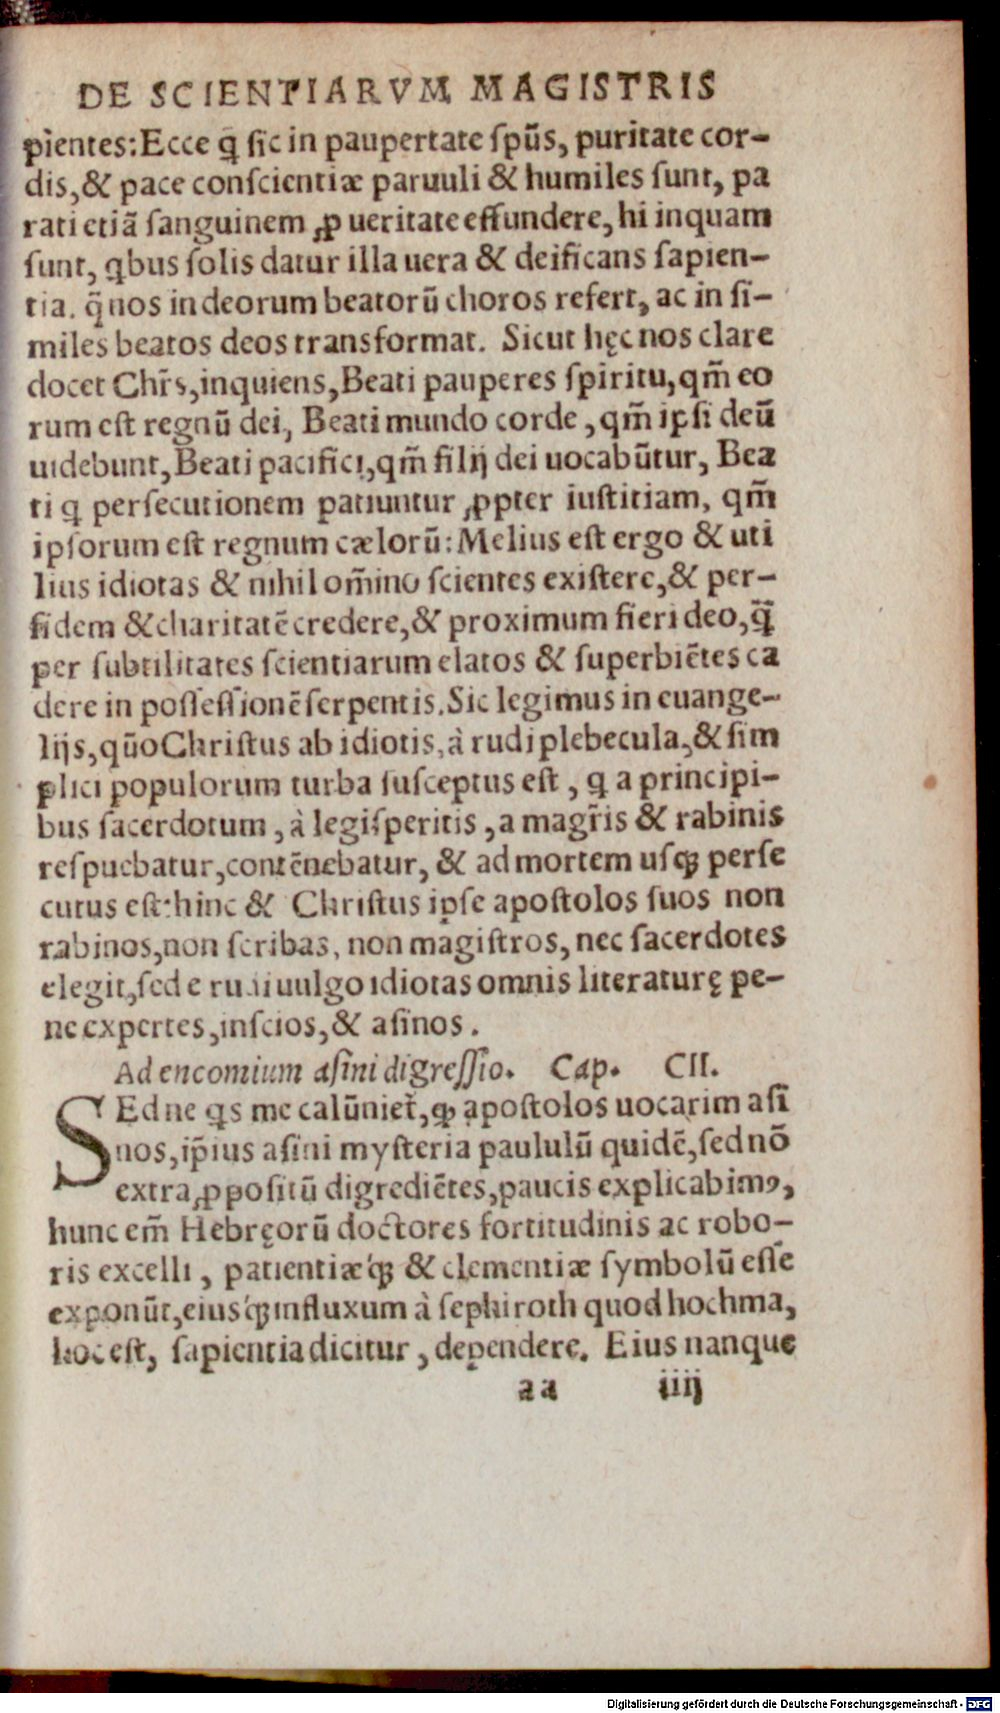 DE SCIENTIARVM MAGISTRIS
pientes:Ecce q̃ ſic in paupertate ſpũs, puritate cor-
dis,& pace conſcientiæ paruuli & humiles ſunt, pa
rati etiã ſanguinem ꝓ ueritate effundere, hi inquam
ſunt, qbus ſolis datur illa uera & deificans ſapien-
tia. q̃ nos in deorum beatorũ choros refert, ac in ſi-
miles beatos deos transformat. Sicut hęc nos clare
docet Chr̃s,inquiens,Beati pauperes ſpiritu,qm̃ eo
rum eſt regnũ dei, Beati mundo corde ,qm̃ ipſi deũ
uidebunt,Beati pacifici,qm̃ filij dei uocabũtur, Bea
ti q persecutionem patiuntur ꝓpter iuſtitiam, qm̃
ipſorum eſt regnum cælorũ:Melius eſt ergo & uti
lius idiotas & nihil om̃ino ſcientes exiſtere,& per-
fidem & charitatẽ credere,& proximum fieri deo,q̃
per ſubtilitates ſcientiarum elatos & ſuperbiẽtes ca
dere in poſſeſſionẽ ſerpentis.Sic legimus in euange-
lijs,qũo Chriſtus ab idiotis,à rudi plebecula,& ſim
plici populorum turba ſuſceptus eſt , q a principi-
bus ſacerdotum ,à legiſperitis ,a magr̃is & rabinis
reſpuebatur,contẽnebatur, & ad mortem uſqꝫ perſe
cutus eſt:hinc & Chriſtus ipſe apoſtolos ſuos non
rabinos,non ſcribas, non magiſtros, nec ſacerdotes
elegit,ſed e rudi uulgo idiotas omnis literaturę pe-
ne expertes,inſcios,& aſinos.
Ad encomium aſini digreſſio. Cap. CII.
SEd ne qs me calũniet̃,ꝙ apoſtolos uocarim aſi
nos,ip̃ius aſini myſteria paululũ quidẽ,ſed nõ
extra ꝓpoſitũ digrediẽtes,paucis explicabimꝰ,
hunc em̃ Hebręorũ doctores fortitudinis ac robo-
ris excelli , patientiæqꝫ & clementiæ ſymbolũ eſſe
exponũt,eiusqꝫ influxum à ſephiroth quod hochma,
hoc eſt, ſapientia dicitur , dependere. Eius nanque
aa iiij
Digitalisierung gefördert durch die Deutsche Forschungsgemeinschaft - DFG